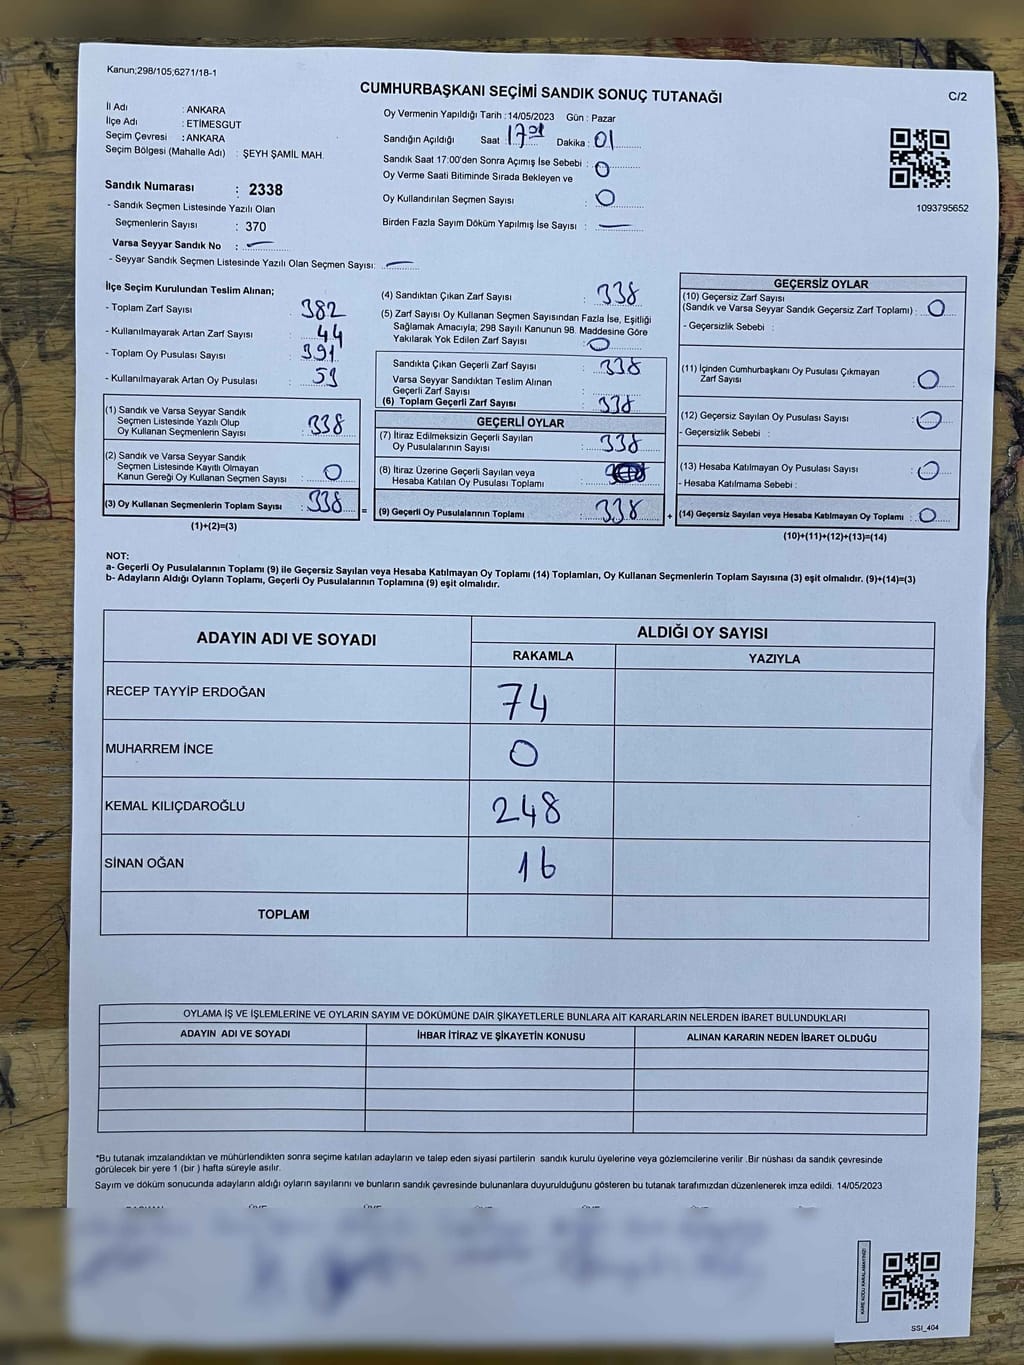 Kanun;298/105;6271/18-1
CUMHURBAŞKANI SEÇİMİ SANDIK SONUÇ TUTANAĞI
C/2
İl Adı : ANKARA
İlçe Adı : ETİMESGUT
Seçim Çevresi : ANKARA
Seçim Bölgesi (Mahalle Adı) : ŞEYH ŞAMİL MAH.
Sandık Numarası : 2338
- Sandık Seçmen Listesinde Yazılı Olan
Seçmenlerin Sayısı : 370
Varsa Seyyar Sandık No : —
- Seyyar Sandık Seçmen Listesinde Yazılı Olan Seçmen Sayısı: —
Oy Vermenin Yapıldığı Tarih : 14/05/2023 Gün : Pazar
Sandığın Açıldığı Saat 17 01 Dakika : 01
Sandık Saat 17:00'den Sonra Açımış İse Sebebi : 0
Oy Verme Saati Bitiminde Sırada Bekleyen ve
Oy Kullandırılan Seçmen Sayısı : 0
Birden Fazla Sayım Döküm Yapılmış İse Sayısı : —
1093795652
İlçe Seçim Kurulundan Teslim Alınan;
- Toplam Zarf Sayısı : 382
- Kullanılmayarak Artan Zarf Sayısı : 44
- Toplam Oy Pusulası Sayısı : 391
- Kullanılmayarak Artan Oy Pusulası : 53
(1) Sandık ve Varsa Seyyar Sandık
Seçmen Listesinde Yazılı Olup
Oy Kullanan Seçmenlerin Sayısı : 338
(2) Sandık ve Varsa Seyyar Sandık
Seçmen Listesinde Kayıtlı Olmayan
Kanun Gereği Oy Kullanan Seçmen Sayısı : 0
(3) Oy Kullanan Seçmenlerin Toplam Sayısı : 338 =
(1)+(2)=(3)
(4) Sandıktan Çıkan Zarf Sayısı : 338
(5) Zarf Sayısı Oy Kullanan Seçmen Sayısından Fazla İse, Eşitliği
Sağlamak Amacıyla; 298 Sayılı Kanunun 98. Maddesine Göre
Yakılarak Yok Edilen Zarf Sayısı : 0
Sandıkta Çıkan Geçerli Zarf Sayısı : 338
Varsa Seyyar Sandıktan Teslim Alınan
Geçerli Zarf Sayısı :
(6) Toplam Geçerli Zarf Sayısı : 338
GEÇERLİ OYLAR
(7) İtiraz Edilmeksizin Geçerli Sayılan
Oy Pusulalarının Sayısı : 338
(8) İtiraz Üzerine Geçerli Sayılan veya
Hesaba Katılan Oy Pusulası Toplamı :
(9) Geçerli Oy Pusulalarının Toplamı : 338 +
GEÇERSİZ OYLAR
(10) Geçersiz Zarf Sayısı
(Sandık ve Varsa Seyyar Sandık Geçersiz Zarf Toplamı) : 0
- Geçersizlik Sebebi :
(11) İçinden Cumhurbaşkanı Oy Pusulası Çıkmayan
Zarf Sayısı : 0
(12) Geçersiz Sayılan Oy Pusulası Sayısı : 0
- Geçersizlik Sebebi :
(13) Hesaba Katılmayan Oy Pusulası Sayısı : 0
- Hesaba Katılmama Sebebi :
(14) Geçersiz Sayılan veya Hesaba Katılmayan Oy Toplamı : 0
(10)+(11)+(12)+(13)=(14)
NOT:
a- Geçerli Oy Pusulalarının Toplamı (9) ile Geçersiz Sayılan veya Hesaba Katılmayan Oy Toplamı (14) Toplamları, Oy Kullanan Seçmenlerin Toplam Sayısına (3) eşit olmalıdır. (9)+(14)=(3)
b- Adayların Aldığı Oyların Toplamı, Geçerli Oy Pusulalarının Toplamına (9) eşit olmalıdır.
ADAYIN ADI VE SOYADI
ALDIĞI OY SAYISI
RAKAMLA YAZIYLA
RECEP TAYYİP ERDOĞAN 74
MUHARREM İNCE 0
KEMAL KILIÇDAROĞLU 248
SİNAN OĞAN 16
TOPLAM
OYLAMA İŞ VE İŞLEMLERİNE VE OYLARIN SAYIM VE DÖKÜMÜNE DAİR ŞİKAYETLERLE BUNLARA AİT KARARLARIN NELERDEN İBARET BULUNDUKLARI
ADAYIN ADI VE SOYADI İHBAR İTİRAZ VE ŞİKAYETİN KONUSU ALINAN KARARIN NEDEN İBARET OLDUĞU
*Bu tutanak imzalandıktan ve mühürlendikten sonra seçime katılan adayların ve talep eden siyasi partilerin sandık kurulu üyelerine veya gözlemcilerine verilir .Bir nüshası da sandık çevresinde
görülecek bir yere 1 (bir ) hafta süreyle asılır.
Sayım ve döküm sonucunda adayların aldığı oyların sayılarını ve bunların sandık çevresinde bulunanlara duyurulduğunu gösteren bu tutanak tarafımızdan düzenlenerek imza edildi. 14/05/2023
KARE KODU KARALAMAYINIZ!
SSI_404